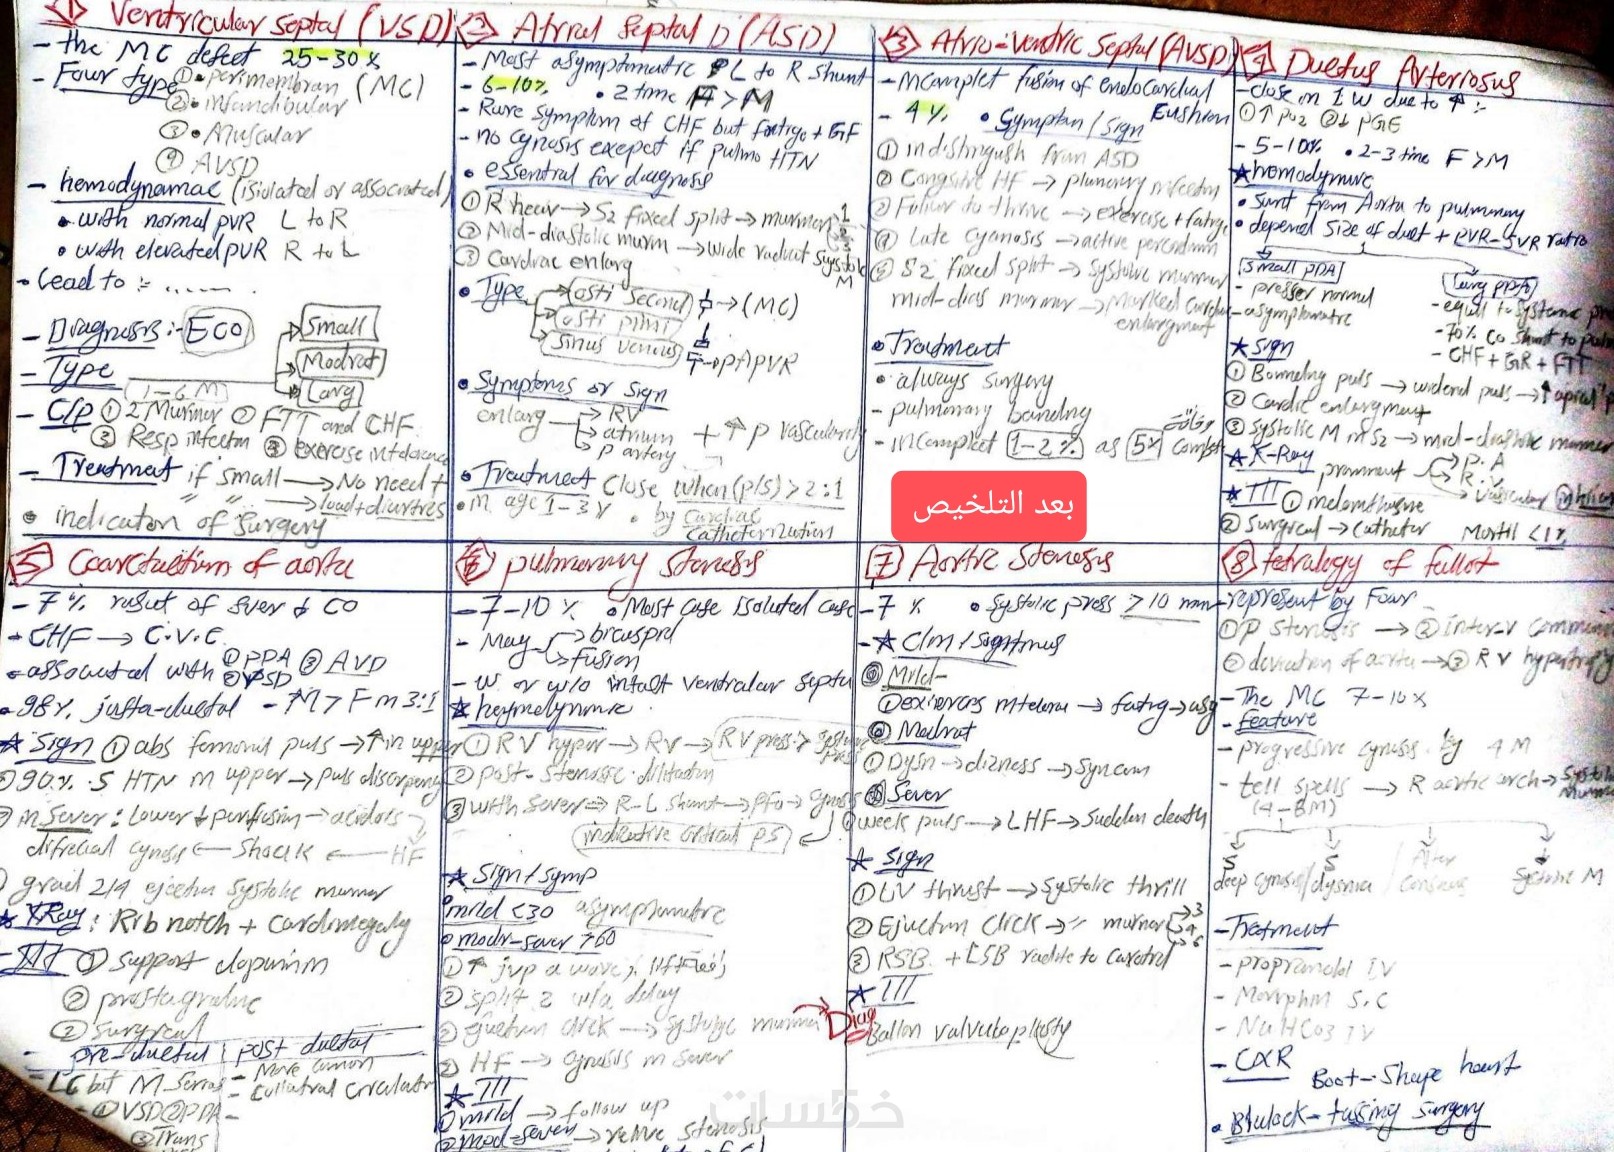 1 Ventricular Septal (VSD)
- the MC defect 25-30%
- Four type ① • perimembran (MC)
② • infandibular
③ • Muscular
④ AVSD
- hemodynamac (isiolated or associated)
• with normal PVR L to R
• with elevated PVR R to L
- Lead to :- ......
- Diagnosis :- ECO
- Type
Small
Modrat
Larg
1-6 M
- C/p ① 2 Murmer ② FTT and CHF
③ Resp infectin ③ exercise intolerance
- Treatment if small → No need t
" " → load + diuretres
• indicaton of surgery
2 Atrial Septal D (ASD)
- Most asymptomatic L to R shunt
- 6-10% • 2 time F > M
- Rare symptom of CHF but fatige + GF
- no cynosis exepect if pulmo HTN
• essential for diagnosis
① R heav → S2 fixed split → murmer
② Mid-diastolic murm → wide radiat Systole M
③ Cardiac enlarg
• Type
osti second → (MC)
osti primi
Sinus venius → PAPVR
• Symptoms or Sign
enlarg → RV
→ atrium
→ P artery
+ ↑ P vascularity
• Treatment Close when (p/s) > 2:1
• in age 1-3 Y • by Cardiac
Catheterization
3 Atrio-ventric Septal (AVSD)
- incomplet fusion of endocardial
Cushion
- 4% • Symptom/Sign
① indistinguish from ASD
② Congsitive HF → plumonary infectin
③ Failiur to thrive → exercise + fatige
④ Late cyanosis →
⑤ S2 fixed split → Systolic murmur
mid-dias murmer → marked cardiac
enlargment
• Treatment
• always surgery
- pulmonary banding
- incompleet 1-2% as 5%
بعد التلخيص
4 Ductus Arteriosus
- close in 1 W due to ↑ :-
① ↑ PO2 ② ↓ PGE
- 5-10% • 2-3 time F > M
★ hemodynamic
• Sunt from Aorta to pulmonary
• depend Size of duct + PVR-SVR ratio
Small PDA
- presser normal
- asymptomatic
Larg PDA
- equil to systemic
- 70% Co shunt to
- CHF + GR + FTT
★ Sign
① Bounding puls → widend puls → ↑ apical
② Cardic enlargment
③ Systolic M in S2 → mid-diastolic murmer
★ X-Ray prominent → P.A
→ R.V
→ vascular
★ TTT ① indomethasine
② Surgical → Catheter Mortil <1%
5 Coarctaction of aorta
- 7% result of sever ↓ CO
- CHF → C.V.C
- associated with ① PDA ③ AVD
② VSD
• 98% justa-ductal - M > F in 3:1
★ Sign ① abs femoral puls → ↑ in upper
② 90% S HTN in upper → puls discerpency
③ in Sever : Lower ↓ purfusion → acidosis
difrecial cynosis ← Shock ← HF
grail 2/4 ejectin systolic murmer
★ XRay : Rib notch + Cardiomegaly
- TTT ① Support dopamin
② prosta gravline
② surgical
- pre-ductal | post ductal
- LC but M. Serias - More comon
- ① VSD ② PDA - Collatral Circulatio
③ Trans
6 pulmonary Stenosis
- 7-10% • Most case isolated case
- May → bicuspid
→ fusion
- w. or w/o intact ventralar septu
★ heymodynmic
① RV hyper → RV → RV press >
② post-stenosic dilitation
③ with sever → R-L shunt → pfo → cynosis
indicative critical ps
★ Sign + symp
mild <30 asymptomatic
• modr-sever >60
① ↑ jvp a wave
② split 2 w/a delay
③ ejection click → systolic murmer
④ HF → cynosis in sever
★ TTT
① mild → follow up
② mod-sever → relive stenosis
7 Aortic Stenosis
- 7% • Systolic press ≥ 10 mm
- ★ Clin/signtms
Mild-
① exirercs intolera → fating →
Modrat
① Dysn → dizness → syncam
Sever
week puls → LHF → Sudden death
★ Sign
① LV thrust → systolic thrill
② Ejection click → " murmer
③ RSB + LSB radite to carotid
★ TTT
Ballon valvuloplasty
8 tetralogy of fallot
- represent by Four
① P stenosis → ② inter-v
② deviation of aorta → ③ RV hypertrophy
- The MC 7-10%
- Feature
- progressive cynosis by 4 M
- tell spells → R aortic arch → Systolic murmer
(4-6M)
deep cynosis / dysniea / Alter Consious
Systolic M
- Treatment
- propranolol IV
- Morphin S.C
- NaHCO3 IV
- CXR Boot-Shape heart
• Blulock-tassing surgery
خمسات